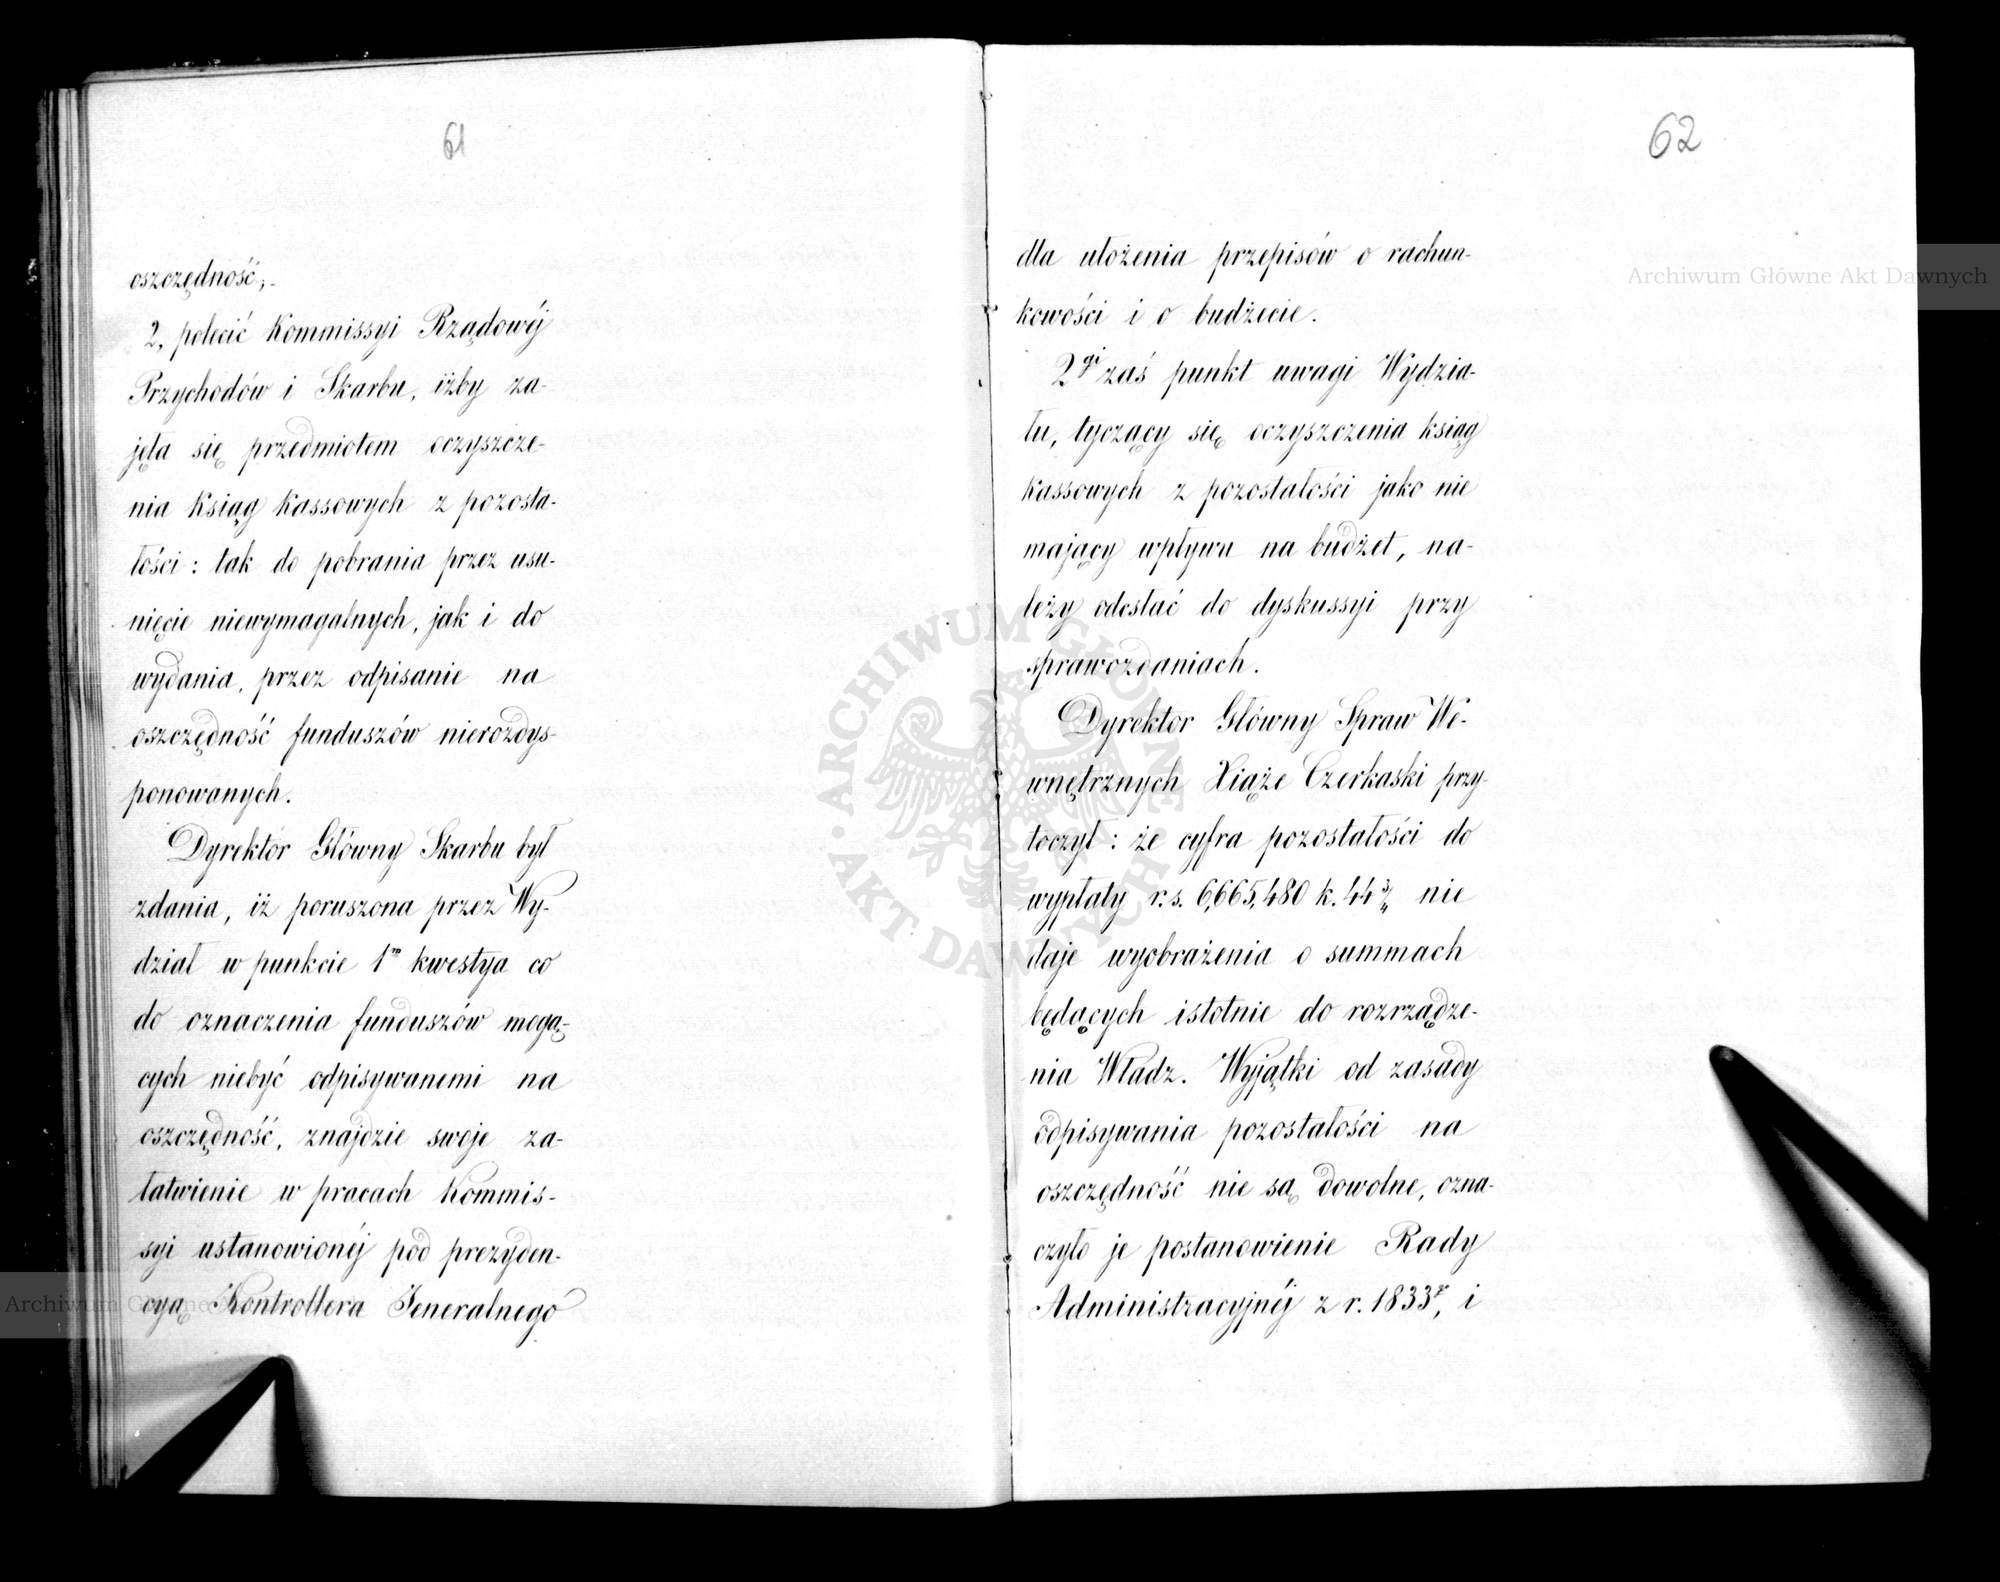 61
oszczędność;.
2, polecić Kommissyi Rządowéj
Przychodów i Skarbu, iżby za-
jęła się przedmiotem oczyszcze-
nia Ksiąg Kassowych z pozosta-
łości: tak do pobrania przez usu-
nięcie niewymagalnych, jak i do
wydania, przez odpisanie na
oszczędność funduszów nierozdys-
ponowanych.
Dyrektór Główny Skarbu był
zdania, iż poruszona przez Wy-
dział w punkcie 1m kwestya co
do oznaczenia funduszów mogą-
cych niebyć odpisywanemi na
oszczędność, znajdzie swoje za-
łatwienie w pracach Kommis-
syi ustanowionéj pod prezyden-
cyą Kontrollera Jeneralnego
62
dla ułożenia przepisów o rachun-
kowości i o budżecie.
2gi zaś punkt uwagi Wydzia-
łu, tyczący się oczyszczenia ksiąg
kassowych z pozostałości jako nie
mający wpływu na budżet, na-
leży odesłać do dyskussyi przy
sprawozdaniach.
Dyrektor Główny Spraw We-
wnętrznych Xiąże Czerkaski przy-
toczył: że cyfra pozostałości do
wypłaty r.s. 6,665,480 k. 44 3/4 nie
daje wyobrażenia o summach
będących istotnie do rozrządze-
nia Władz. Wyjątki od zasady
odpisywania pozostałości na
oszczędność nie są dowolne, ozna-
czyło je postanowienie Rady
Administracyjnéj z r. 1833r, i
Archiwum Główne Akt Dawnych
ARCHIWUM GŁÓWNE AKT DAWNYCH